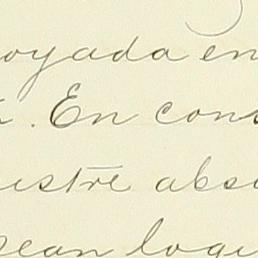 oyada en
. En cons
ustre abso
sean logi